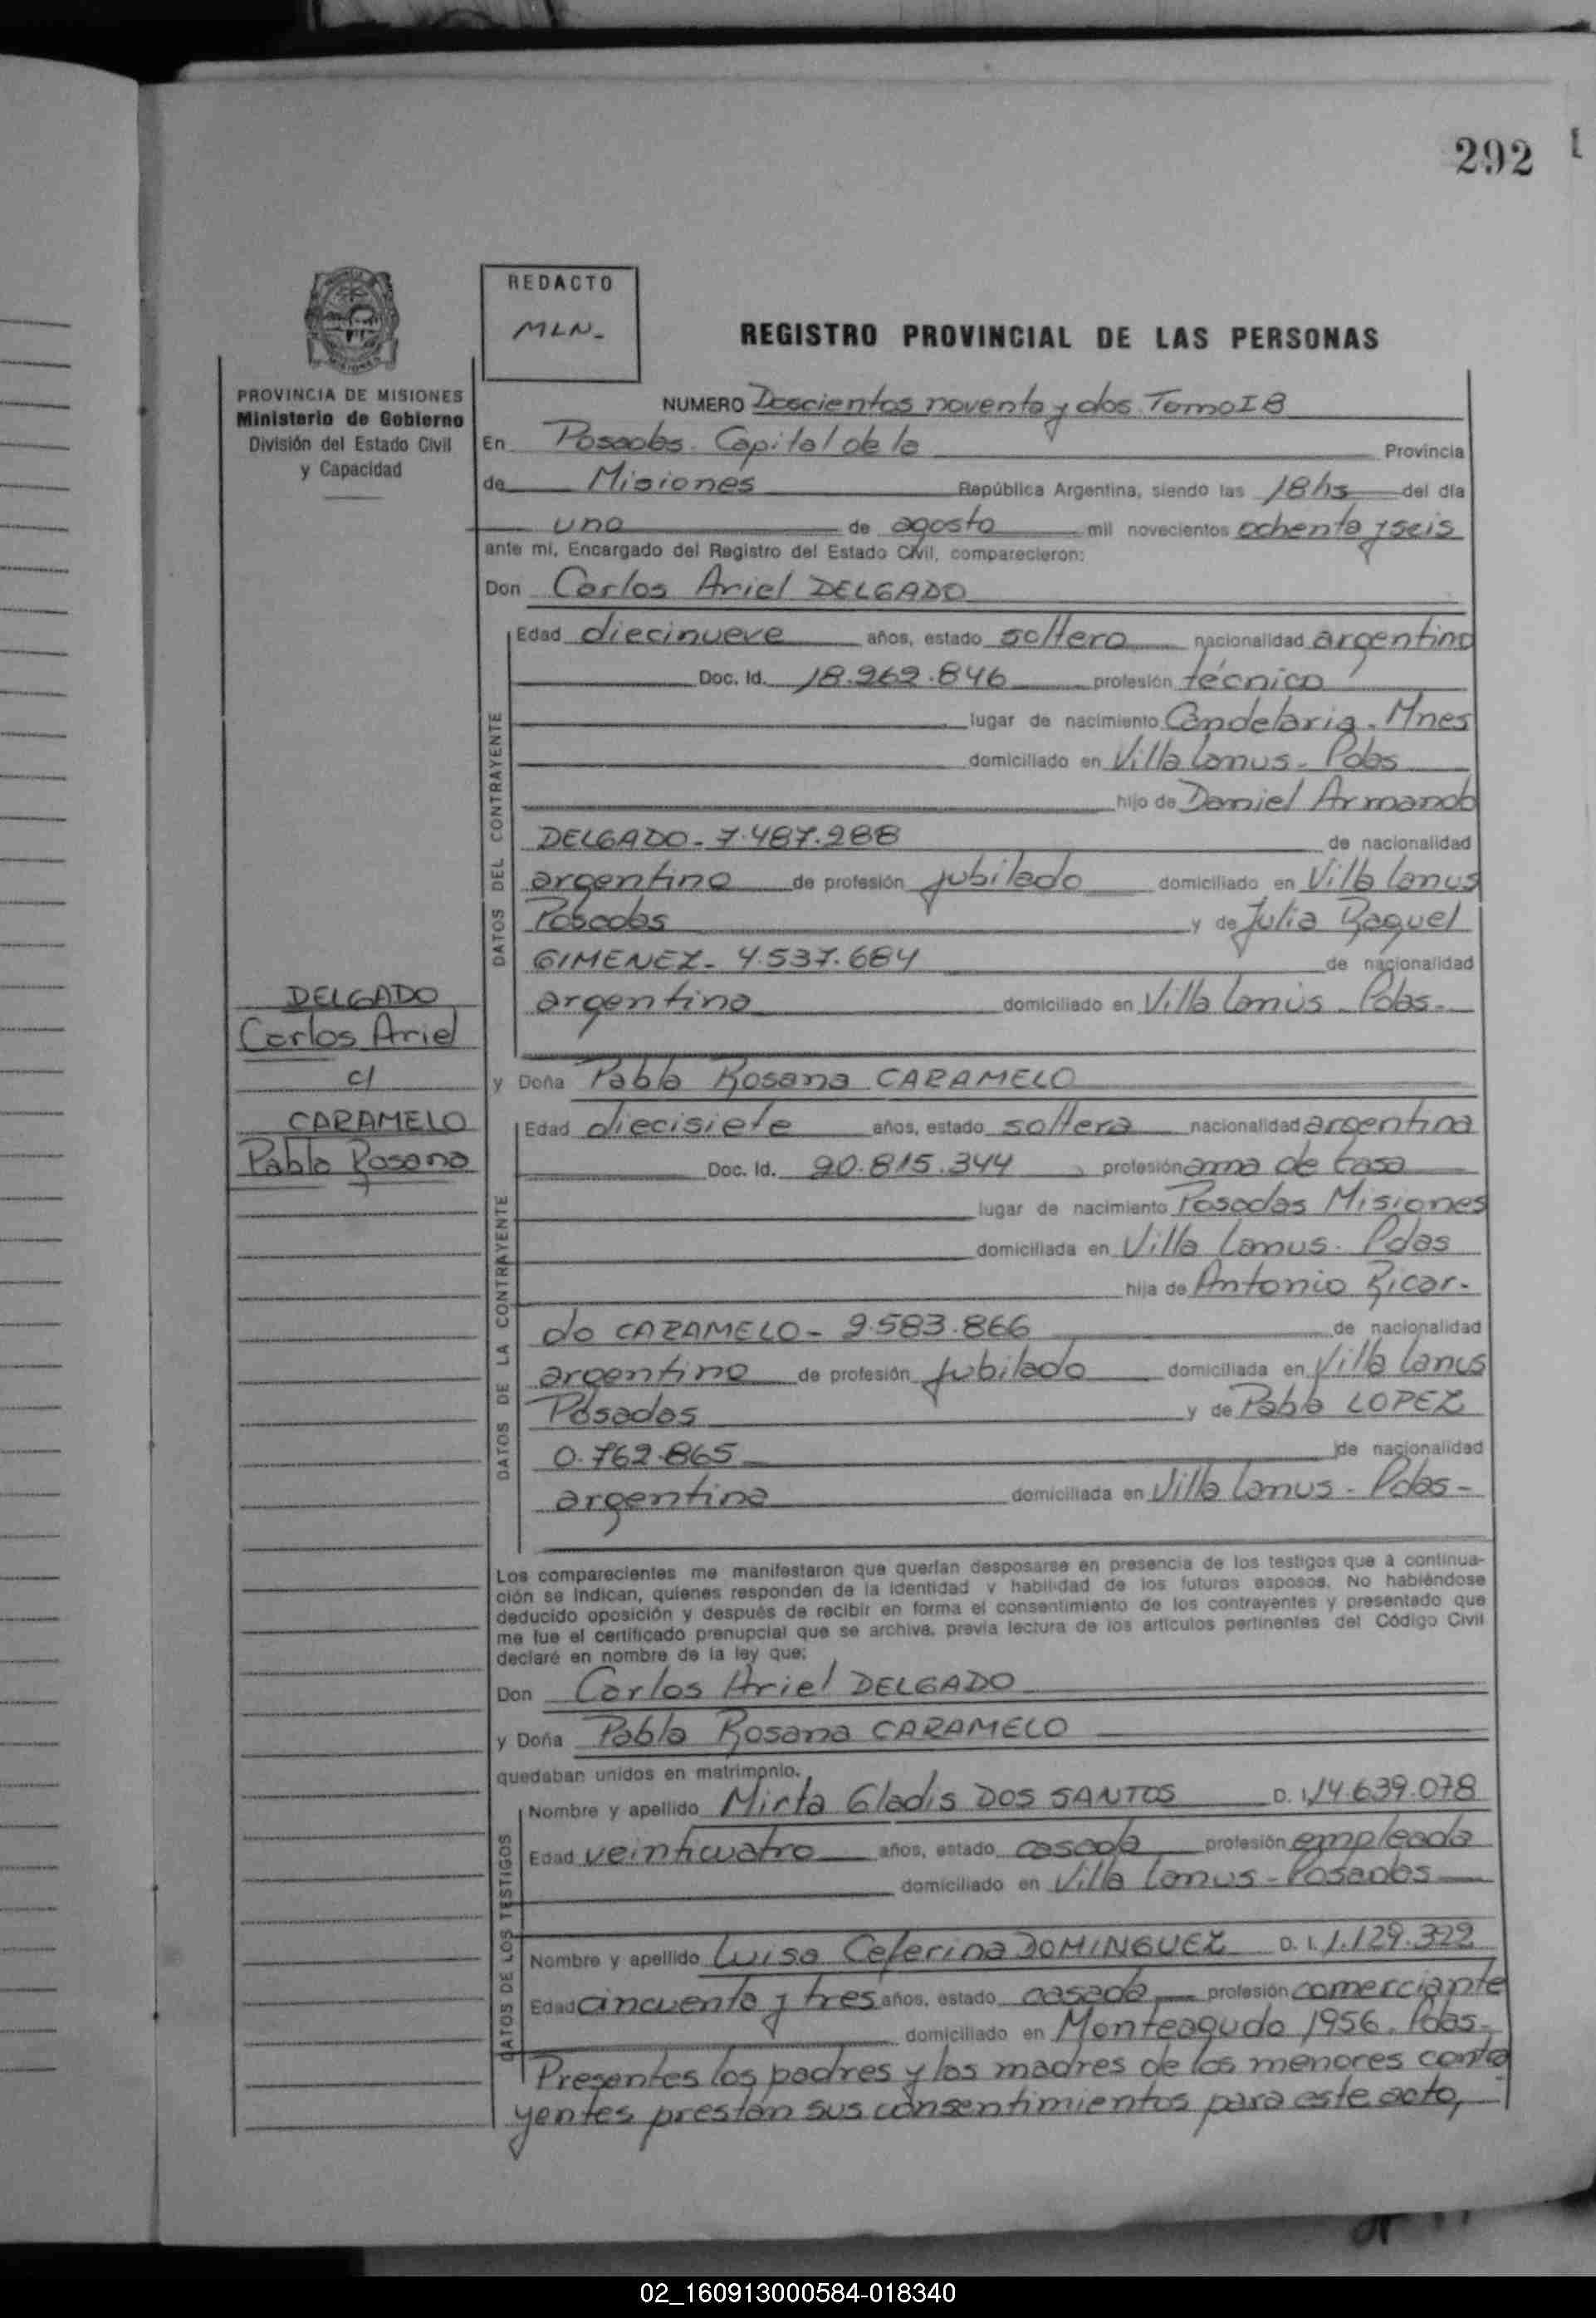 292
REDACTO
MLN-
REGISTRO PROVINCIAL DE LAS PERSONAS
PROVINCIA DE MISIONES
Ministerio de Gobierno
División del Estado Civil
y Capacidad
NUMERO Doscientos noventa y dos. Tomo I B
En Posadas. Capital de la Provincia
de Misiones República Argentina, siendo las 18hs del día
uno de agosto mil novecientos ochenta y seis
ante mí, Encargado del Registro del Estado Civil, comparecieron:
Don Carlos Ariel DELGADO
DATOS DEL CONTRAYENTE
Edad diecinueve años, estado soltero nacionalidad argentino
Doc. Id. 18.262.846 profesión técnico
lugar de nacimiento Candelaria. Mnes
domiciliado en Villa Lanus. Pdas
hijo de Daniel Armando
DELGADO - 7.487.288 de nacionalidad
argentino de profesión jubilado domiciliado en Villa Lanus
Posadas y de Julia Raquel
GIMENEZ - 4.537.684 de nacionalidad
argentina domiciliado en Villa Lanus. Pdas.
DELGADO
Carlos Ariel
c/
CARAMELO
Pabla Rosana
y Doña Pabla Rosana CARAMELO
DATOS DE LA CONTRAYENTE
Edad diecisiete años, estado soltera nacionalidad argentina
Doc. Id. 20.815.344 profesión ama de casa
lugar de nacimiento Posadas Misiones
domiciliada en Villa Lanus. Pdas
hija de Antonio Ricar-
do CARAMELO - 2.583.866 de nacionalidad
argentino de profesión jubilado domiciliada en Villa Lanus
Posadas y de Pabla LOPEZ
0.762.865 de nacionalidad
argentina domiciliada en Villa Lanus - Pdas -
Los comparecientes me manifestaron que querían desposarse en presencia de los testigos que a continua-
ción se indican, quienes responden de la identidad y habilidad de los futuros esposos. No habiéndose
deducido oposición y después de recibir en forma el consentimiento de los contrayentes y presentado que
me fue el certificado prenupcial que se archiva, previa lectura de los artículos pertinentes del Código Civil
declaré en nombre de la ley que:
Don Carlos Ariel DELGADO
y Doña Pabla Rosana CARAMELO
quedaban unidos en matrimonio.
DATOS DE LOS TESTIGOS
Nombre y apellido Mirta Gladis DOS SANTOS D. I. 14.639.078
Edad veinticuatro años, estado casada profesión empleada
domiciliado en Villa Lanus - Posadas
Nombre y apellido Luisa Ceferina DOMINGUEZ D. I. 1.129.322
Edad cincuenta y tres años, estado casada profesión comerciante
domiciliado en Monteagudo 1956. Pdas.
Presentes los padres y las madres de los menores contra
yentes prestan sus consentimientos para este acto,
02_160913000584-018340